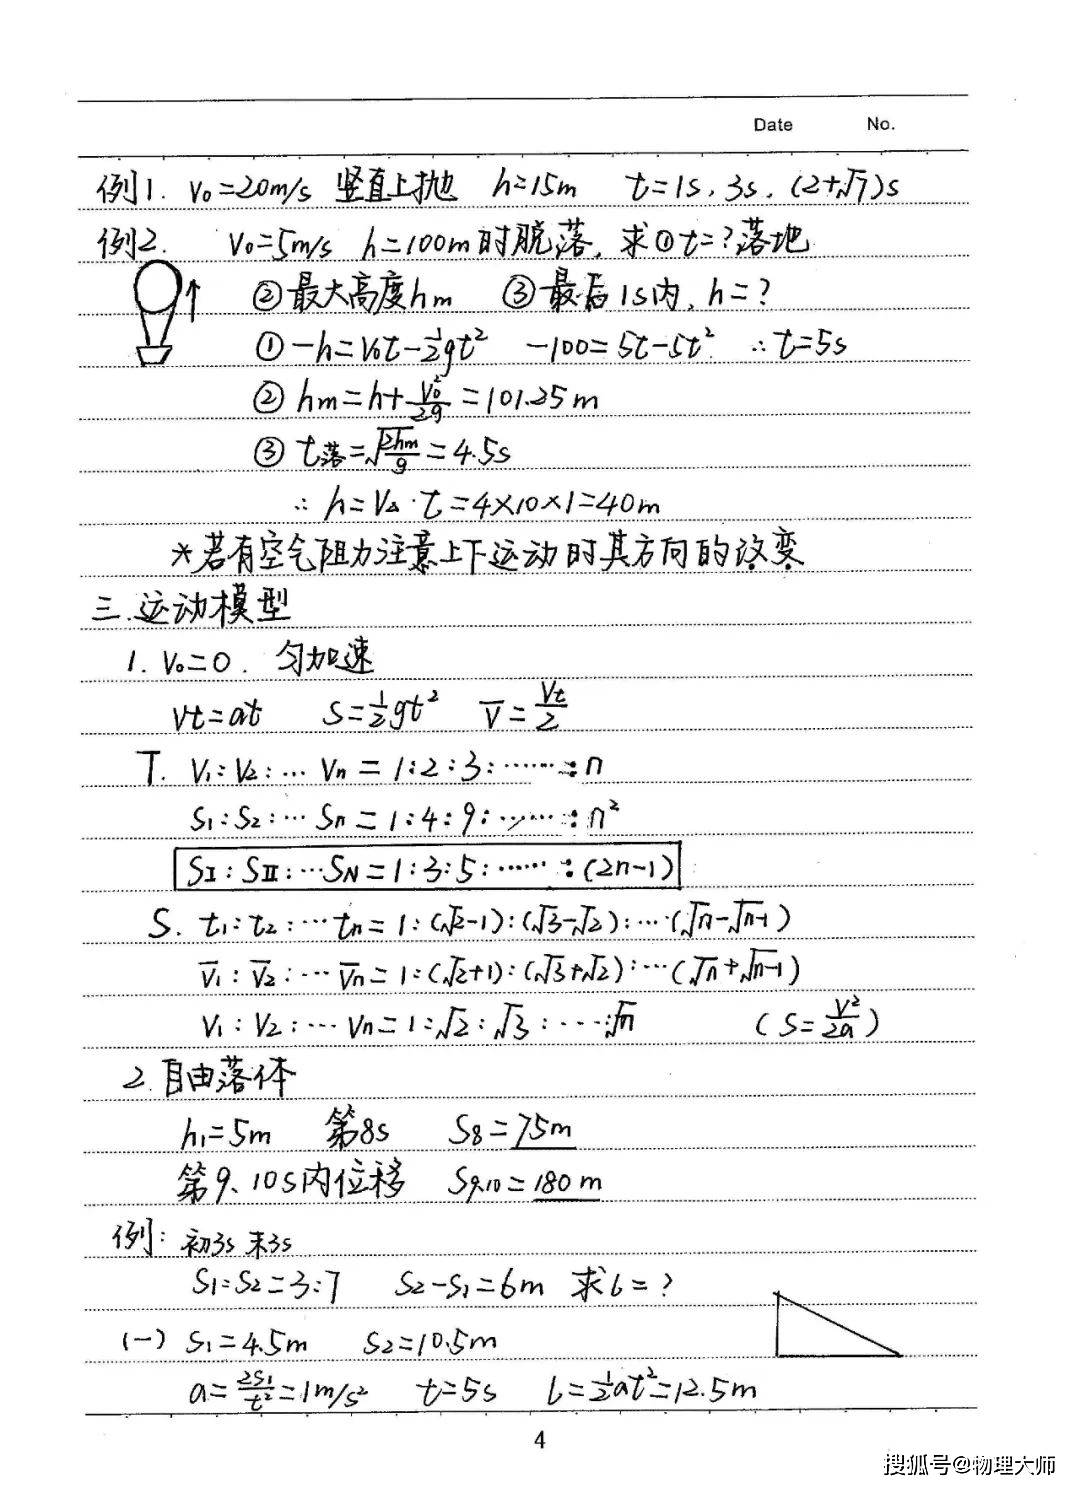 Date No.
例1. V₀=20m/s 竖直上抛 h=15m t=1s, 3s, (2+√7)s
例2. V₀=5m/s h=100m时脱落, 求①t=?落地
②最大高度hm ③最后1s内, h=?
①-h=V₀t-½gt² -100=5t-5t² ∴t=5s
②hm=h+V₀²/2g=101.25m
③t落=√(2hm/g)=4.5s
∴h=V·t=4×10×1=40m
*若有空气阻力注意上下运动时其方向的改变
三.运动模型
1. V₀=0. 匀加速
Vt=at S=½gt² V̅=Vt/2
T. V₁:V₂:…Vn=1:2:3:……:n
S₁:S₂:…Sn=1:4:9:……:n²
SⅠ:SⅡ:…SN=1:3:5:……:(2n-1)
S. t₁:t₂:…tn=1:(√2-1):(√3-√2):…(√n-√n-1)
V̅₁:V̅₂:…V̅n=1:(√2+1):(√3+√2):…(√n+√n-1)
V₁:V₂:…Vn=1:√2:√3:…:√n (S=V²/2a)
2.自由落体
h₁=5m 第8s S₈=75m
第9、10s内位移 S₉.₁₀=180m
例: 初3s 末3s
S₁:S₂=3:7 S₂-S₁=6m 求L=?
(一) S₁=4.5m S₂=10.5m
a=2S₁/t²=1m/s² t=5s L=½at²=12.5m
4
搜狐号@物理大师